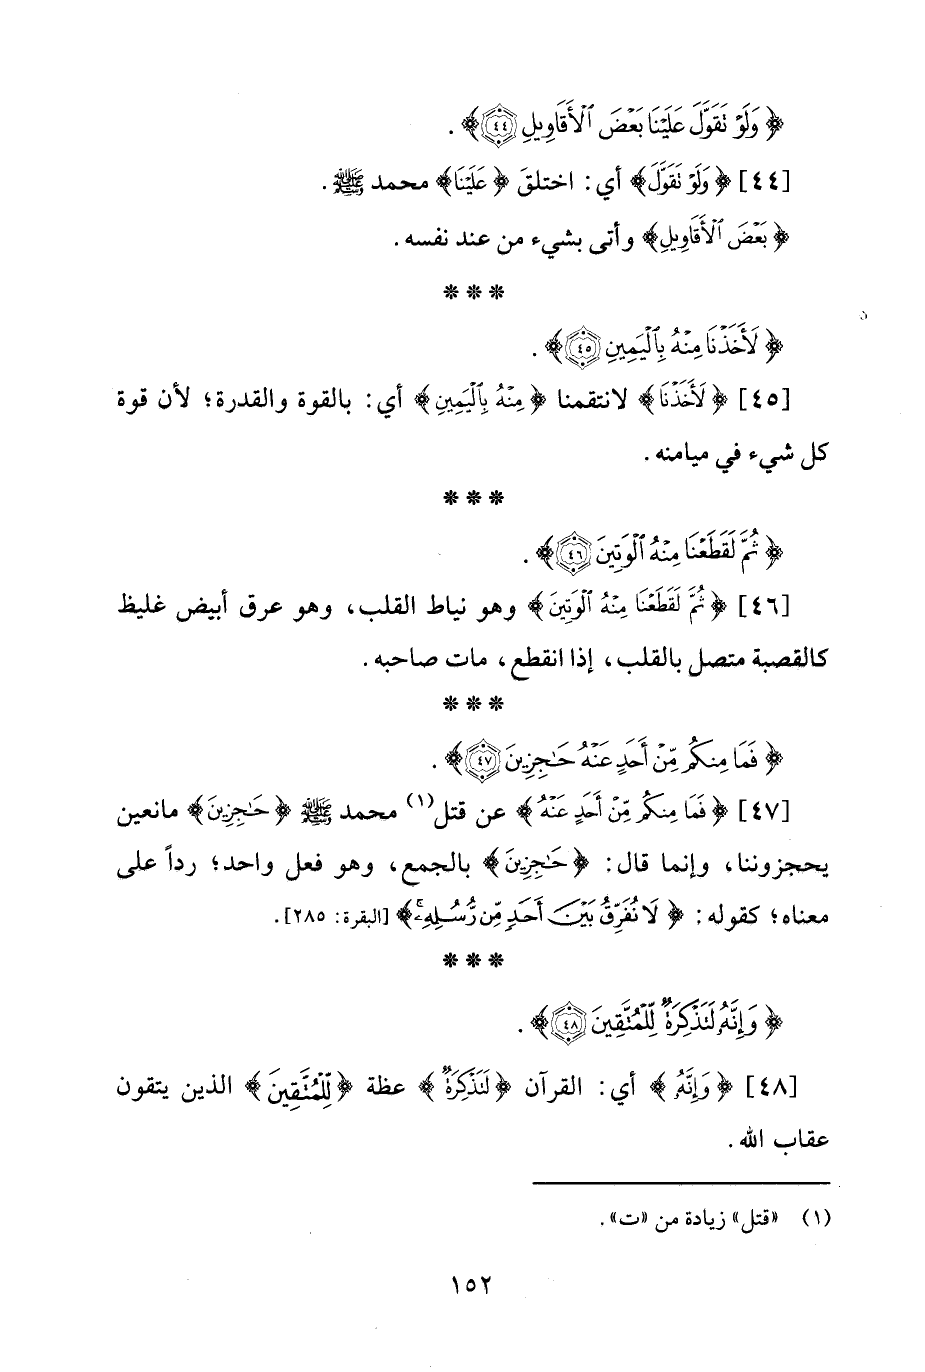 ﴿ وَلَوْ تَقَوَّلَ عَلَيْنَا بَعْضَ ٱلْأَقَاوِيلِ ٤٤ ﴾ .
[٤٤] ﴿ وَلَوْ تَقَوَّلَ ﴾ أي: اختلقَ ﴿ عَلَيْنَا ﴾ محمد ﷺ .
﴿ بَعْضَ ٱلْأَقَاوِيلِ ﴾ وأتى بشيء من عند نفسه.
* * *
﴿ لَأَخَذْنَا مِنْهُ بِٱلْيَمِينِ ٤٥ ﴾ .
[٤٥] ﴿ لَأَخَذْنَا ﴾ لانتقمنا ﴿ مِنْهُ بِٱلْيَمِينِ ﴾ أي: بالقوة والقدرة؛ لأن قوة
كل شيء في ميامنه.
* * *
﴿ ثُمَّ لَقَطَعْنَا مِنْهُ ٱلْوَتِينَ ٤٦ ﴾ .
[٤٦] ﴿ ثُمَّ لَقَطَعْنَا مِنْهُ ٱلْوَتِينَ ﴾ وهو نياط القلب، وهو عرق أبيض غليظ
كالقصبة متصل بالقلب، إذا انقطع، مات صاحبه.
* * *
﴿ فَمَا مِنكُم مِّنْ أَحَدٍ عَنْهُ حَـٰجِزِينَ ٤٧ ﴾ .
[٤٧] ﴿ فَمَا مِنكُم مِّنْ أَحَدٍ عَنْهُ ﴾ عن قتل(١) محمد ﷺ ﴿ حَـٰجِزِينَ ﴾ مانعين
يحجزوننا، وإنما قال: ﴿ حَـٰجِزِينَ ﴾ بالجمع، وهو فعل واحد؛ رداً على
معناه؛ كقوله: ﴿ لَا نُفَرِّقُ بَيْنَ أَحَدٍ مِّن رُّسُلِهِۦ ﴾ [البقرة: ٢٨٥].
* * *
﴿ وَإِنَّهُۥ لَتَذْكِرَةٌ لِّلْمُتَّقِينَ ٤٨ ﴾ .
[٤٨] ﴿ وَإِنَّهُۥ ﴾ أي: القرآن ﴿ لَتَذْكِرَةٌ ﴾ عظة ﴿ لِّلْمُتَّقِينَ ﴾ الذين يتقون
عقاب الله.
(١) «قتل» زيادة من «ت».
١٥٢